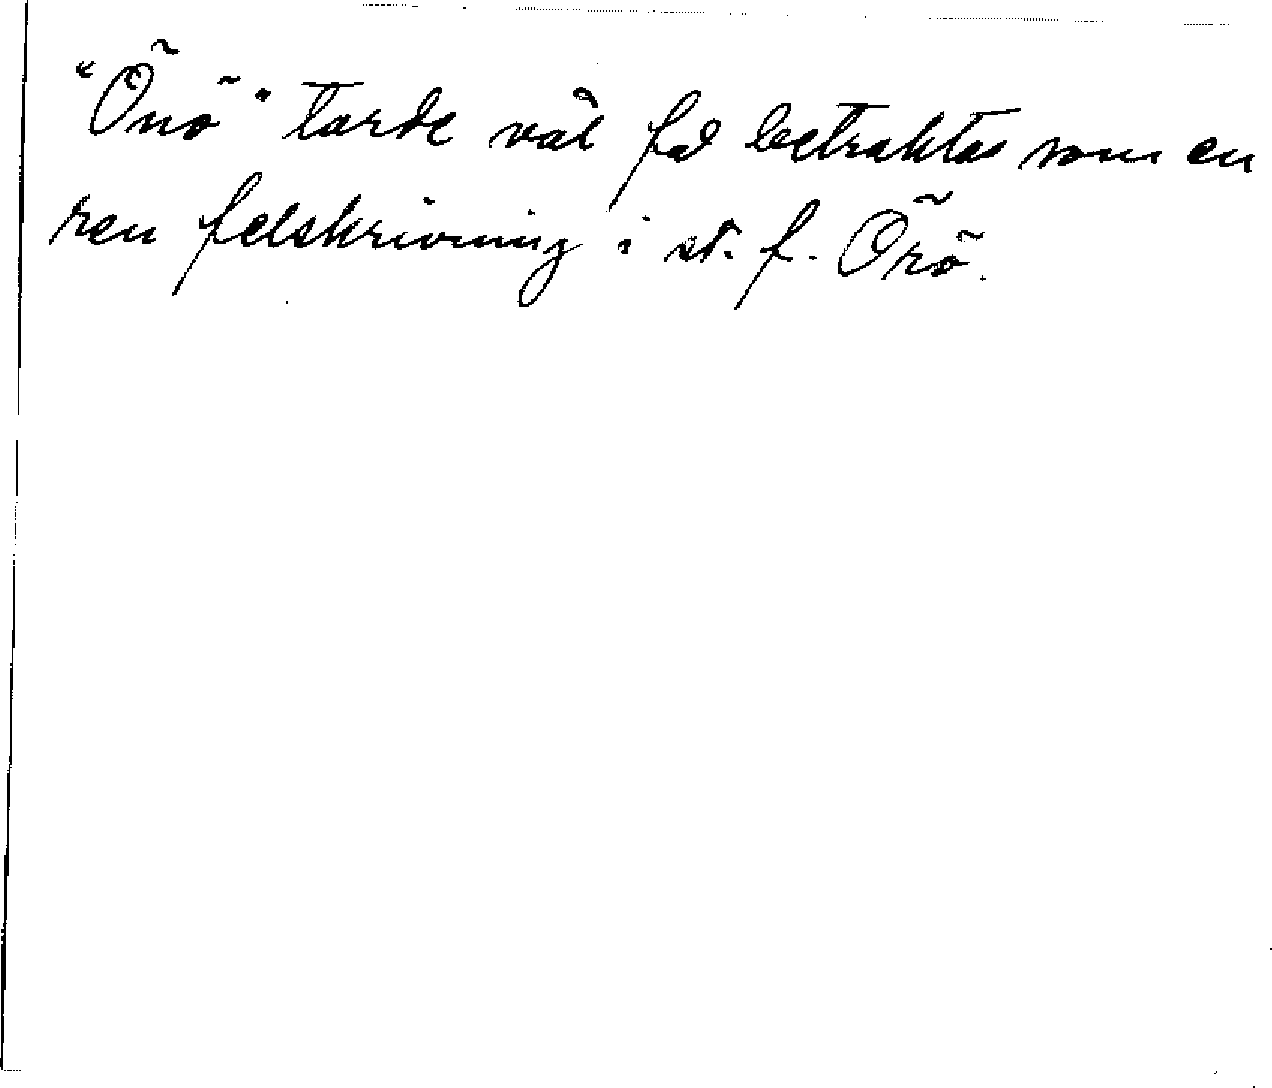 "Önö" torde väl få betraktas som en
ren felskrivning i st. f. Örö.